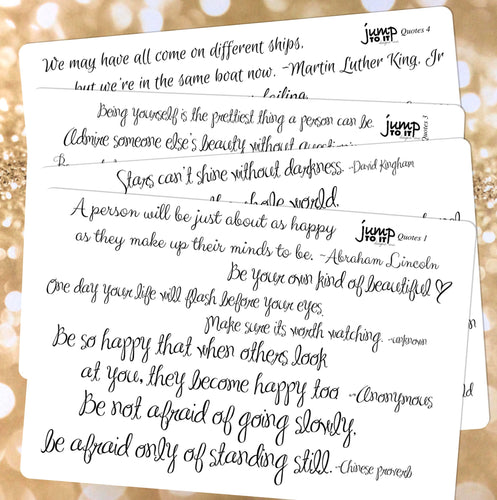 jump
TO IT!
Quotes 4
We may have all come on different ships,
but we're in the same boat now. -Martin Luther King, Jr
Being yourself is the prettiest thing a person can be
jump
TO IT!
Quotes 3
Admire someone else's beauty without
Stars can't shine without darkness. -David Kingham
whole world.
jump
TO IT!
Quotes 1
A person will be just about as happy
as they make up their minds to be. -Abraham Lincoln
Be your own kind of beautiful
One day your life will flash before your eyes.
Make sure its worth watching. -unknown
Be so happy that when others look
at you, they become happy too --Anonymous
Be not afraid of going slowly,
be afraid only of standing still. -Chinese proverb